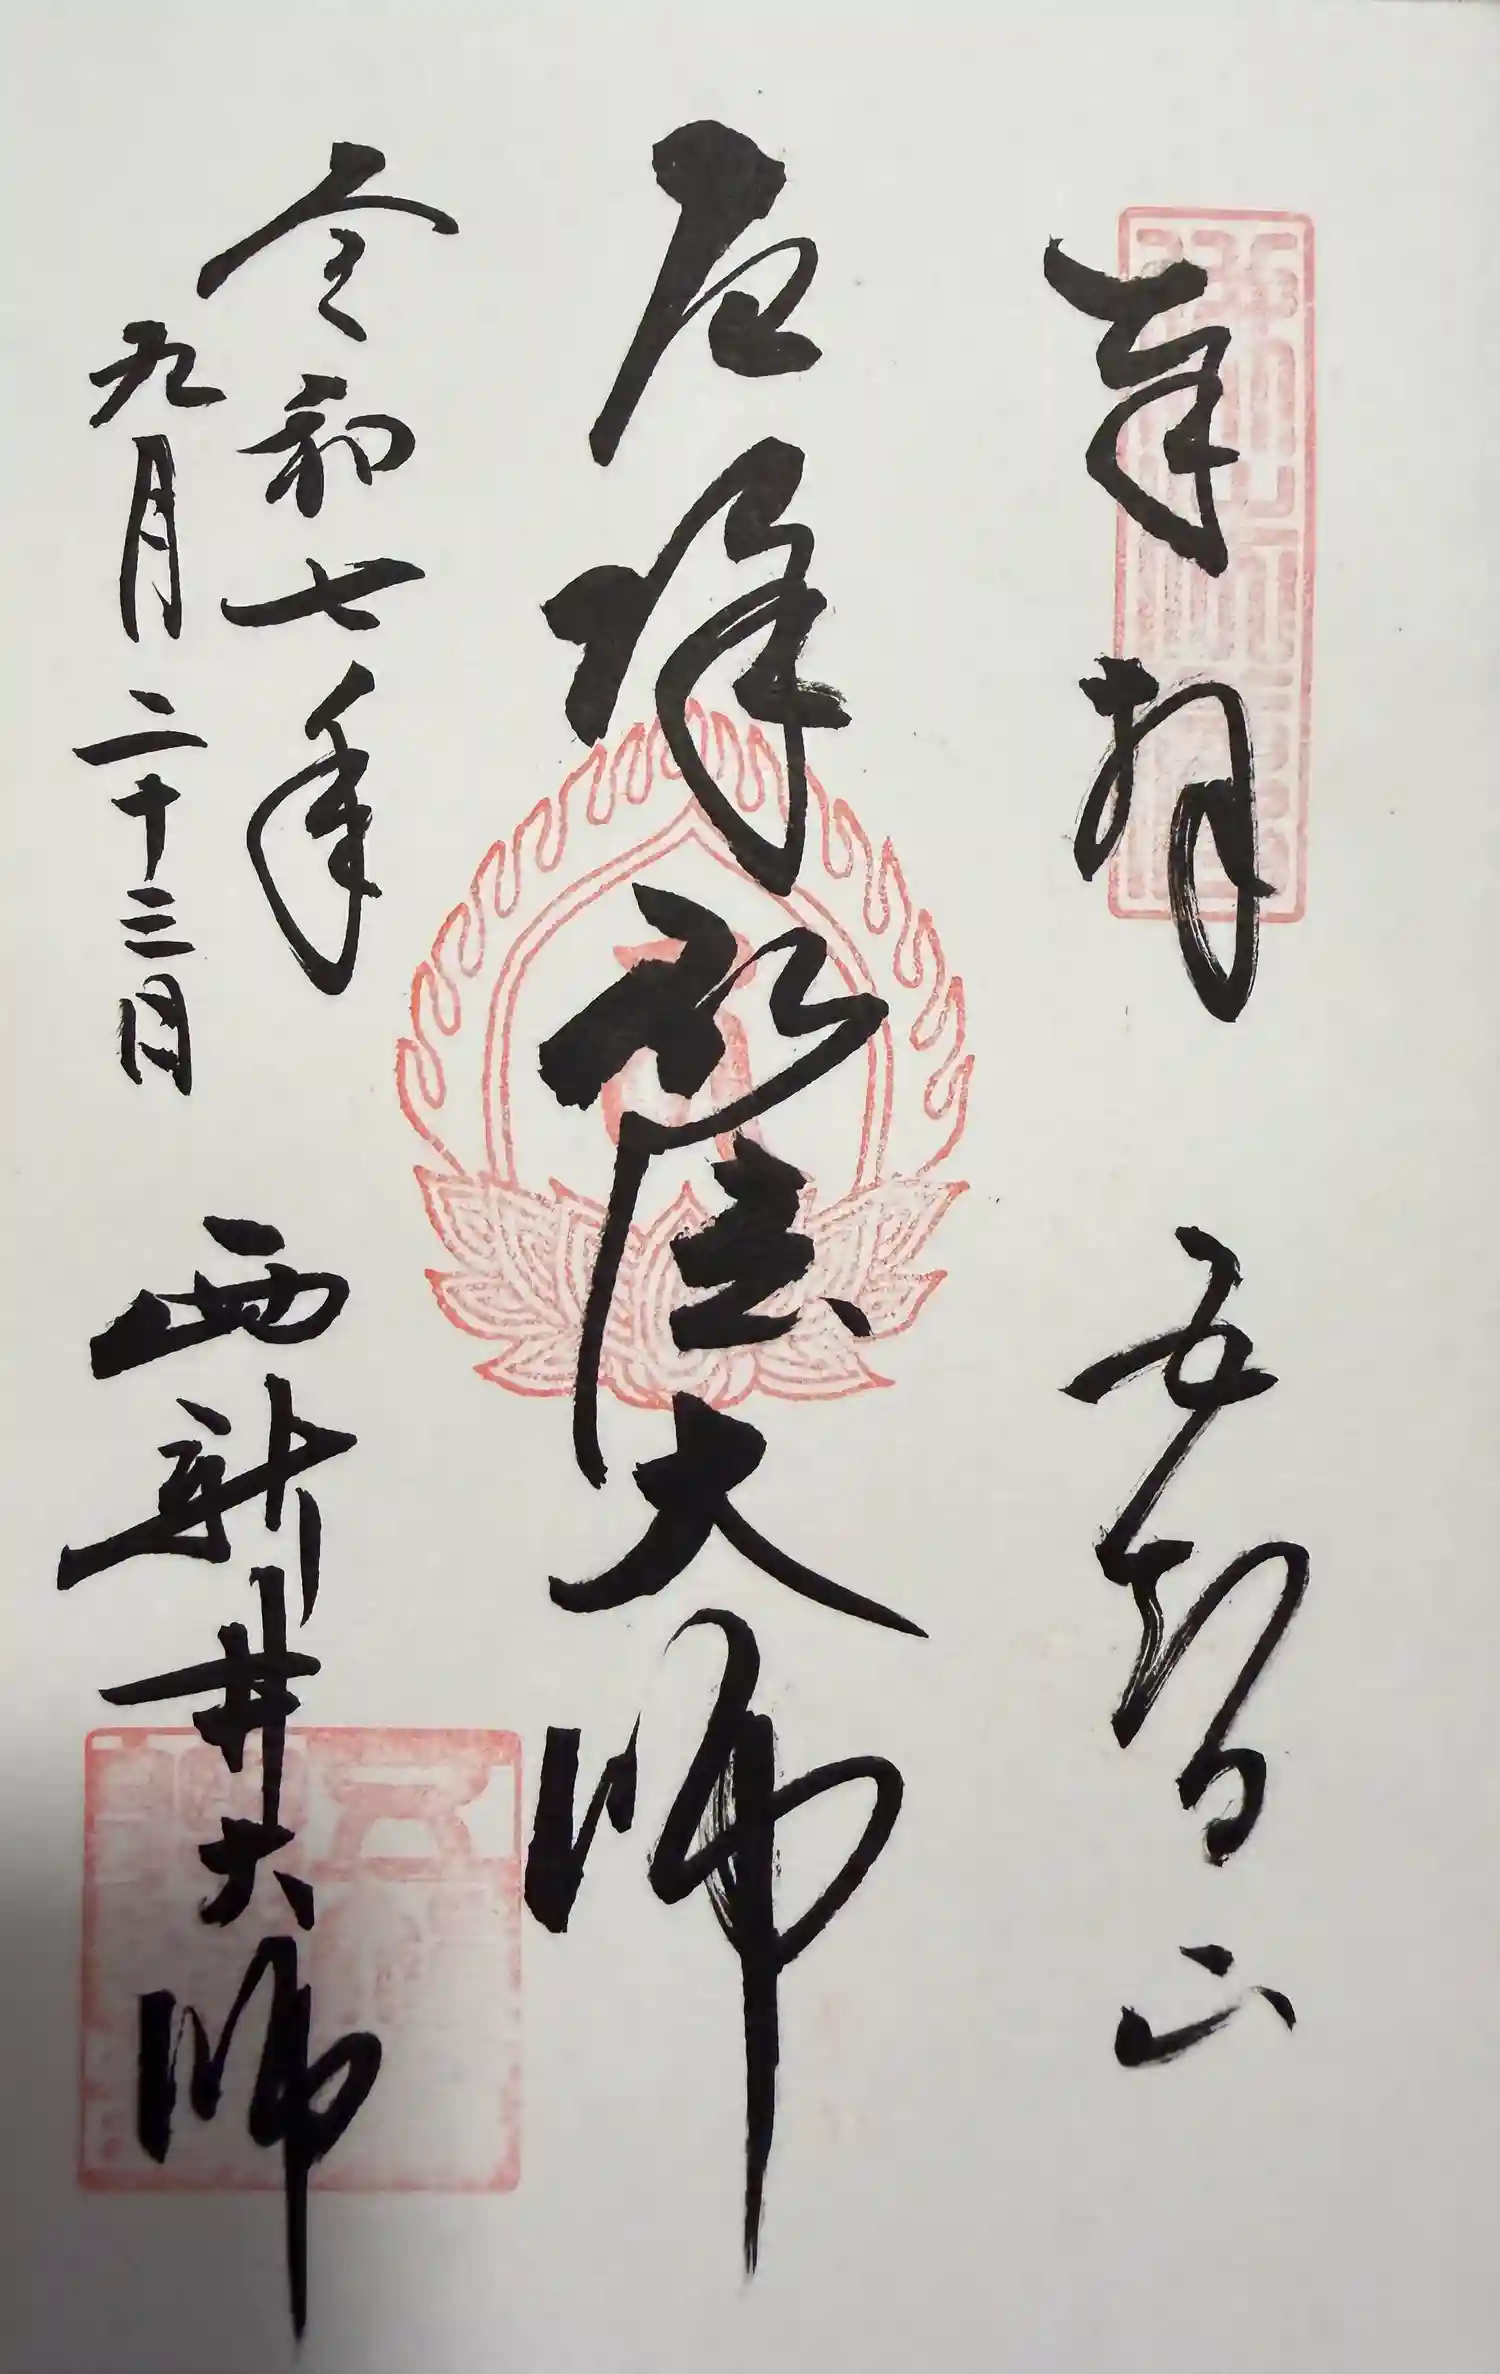 奉拝 五智山
厄除弘法大師
令和七年
九月二十三日
西新井大師